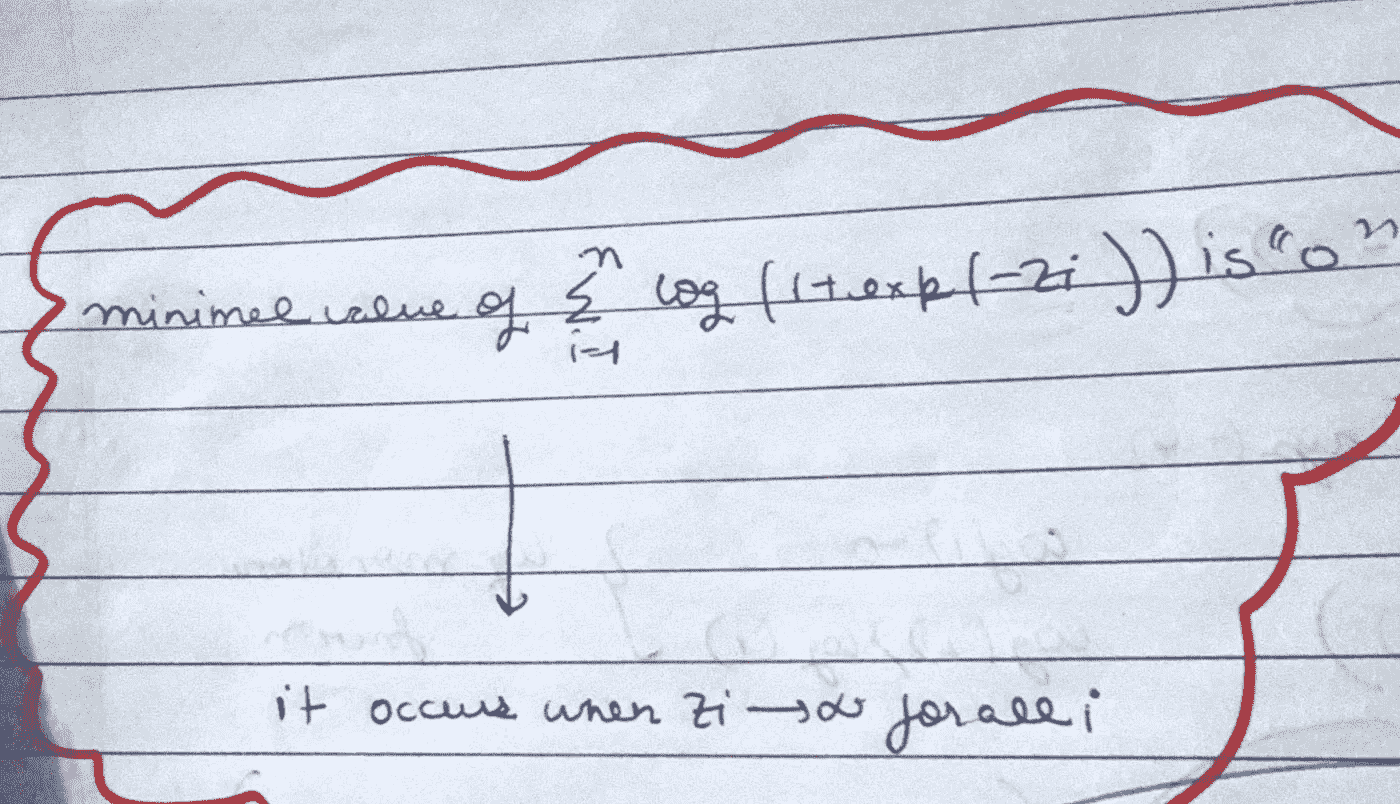 minimel value of \sum_{i=1}^{n} log (1+exp(-zi)) is "0"
it occurs when zi → ∞ for all i